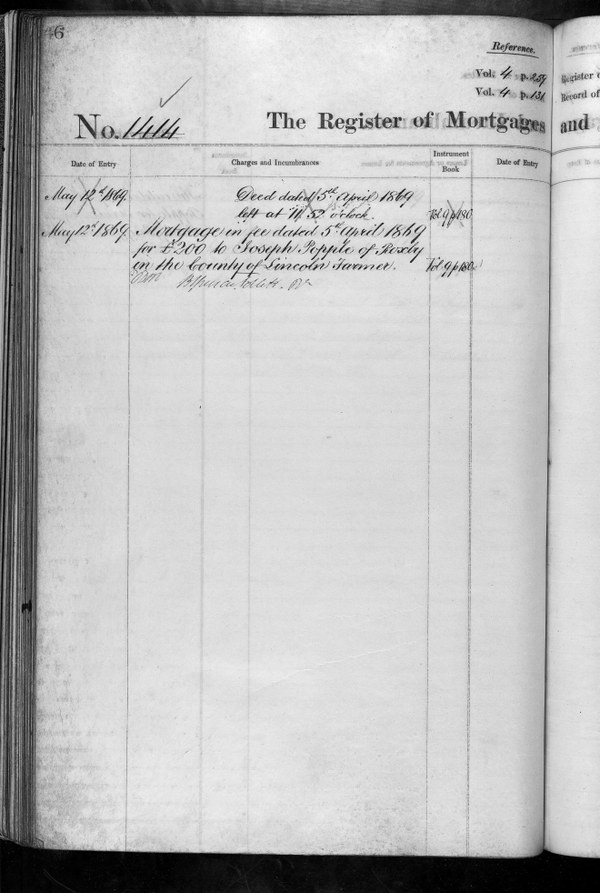 6
Reference.
Vol. 4 p. 257
Vol. 4 p. 131
No. 1414 The Register of Mortgages and
Register
Record of
Date of Entry Charges and Incumbrances Instrument Book Date of Entry
May 12th 1869. Deed dated 5th April 1869
left at 11.52 o'clock. Vol 9 p 180
May 12th 1869 Mortgage in fee dated 5th April 1869
for £200 to Joseph Popple of Roxby
in the County of Lincoln Farmer. Vol 9 p 180